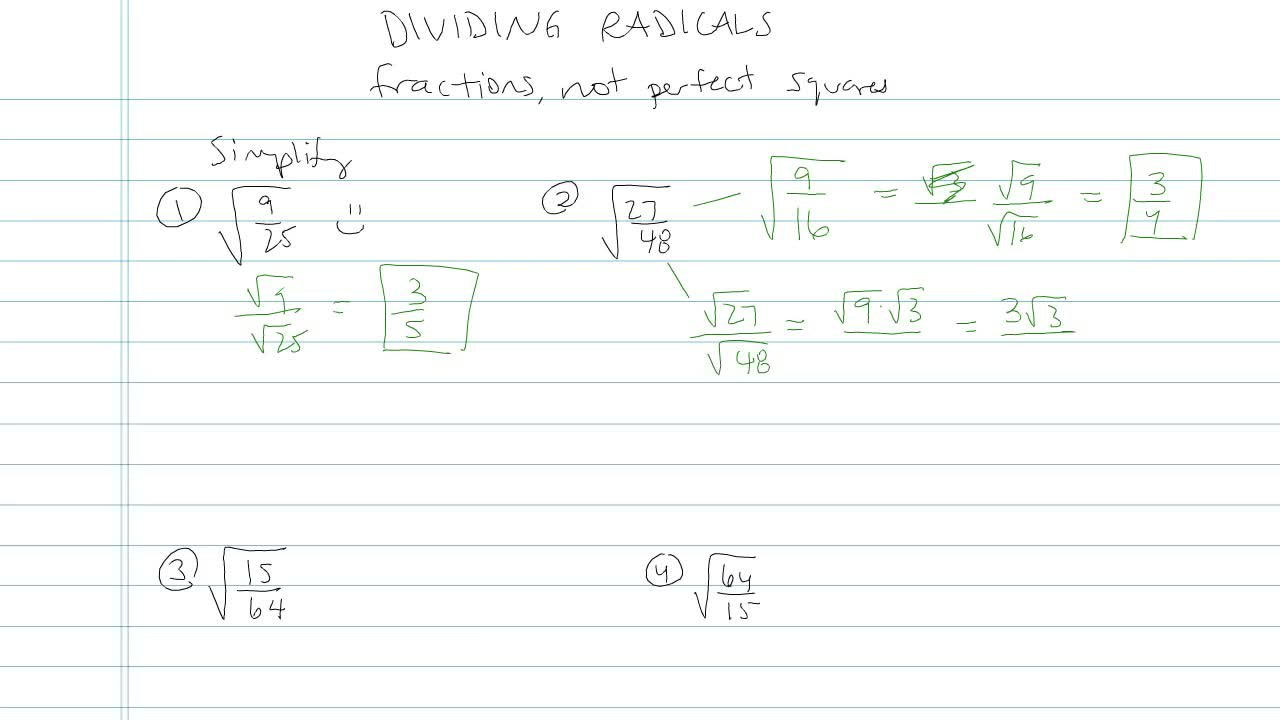 DIVIDING RADICALS
fractions, not perfect squares
Simplify
① √(9/25) :)
√9/√25 = 3/5
② √(27/48) — √(9/16) = √9/√16 = 3/4
√27/√48 = √9·√3 = 3√3
③ √(15/64)
④ √(64/15)